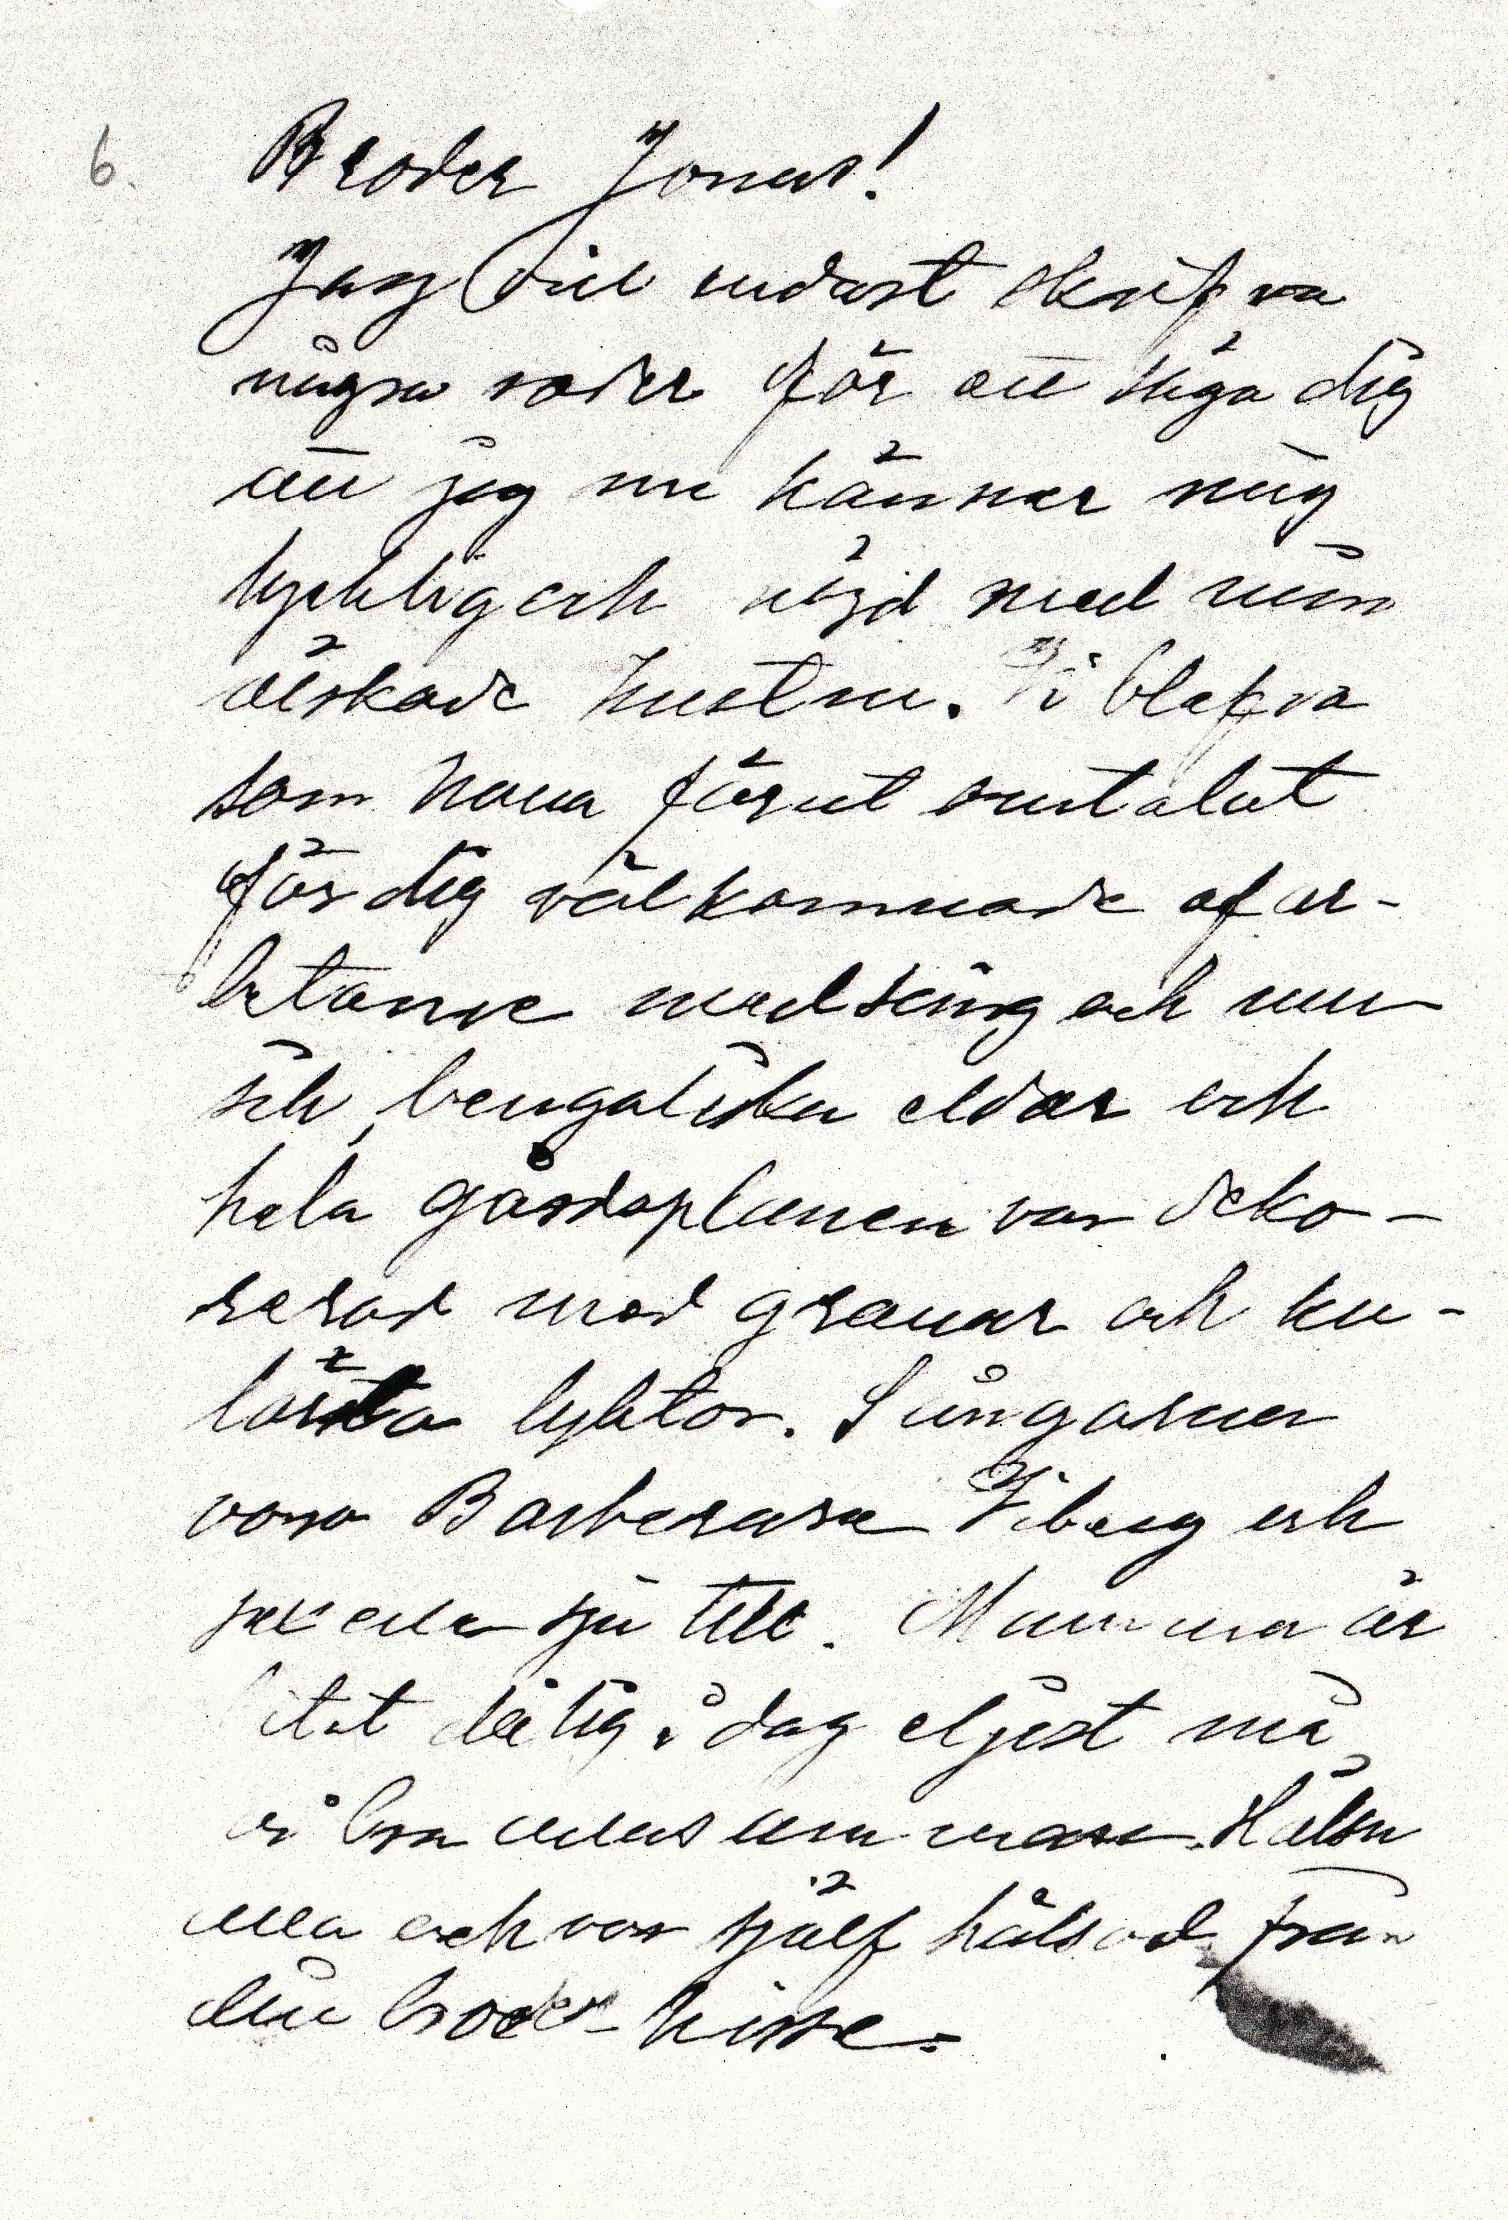 6. Broder Jonas!
Jag vill endast skrifva
några rader för att säga dig
att jag nu känner mig
lycklig och nöjd med min
älskade hustru. Vi blefva
som förut omtalat
för dig välkomnade af ar-
betarne med sång och mu-
sik, bengaliska eldar och
hela gårdsplanen var deko-
rerad med granar och ku-
lörta lyktor. Sångarna
voro Barberare Viberg och
sex eller sju till. Mamma är
litet dålig i dag eljest må
vi bra allesammans. Hälsa
alla och var själf hälsad från
din broder Nisse.